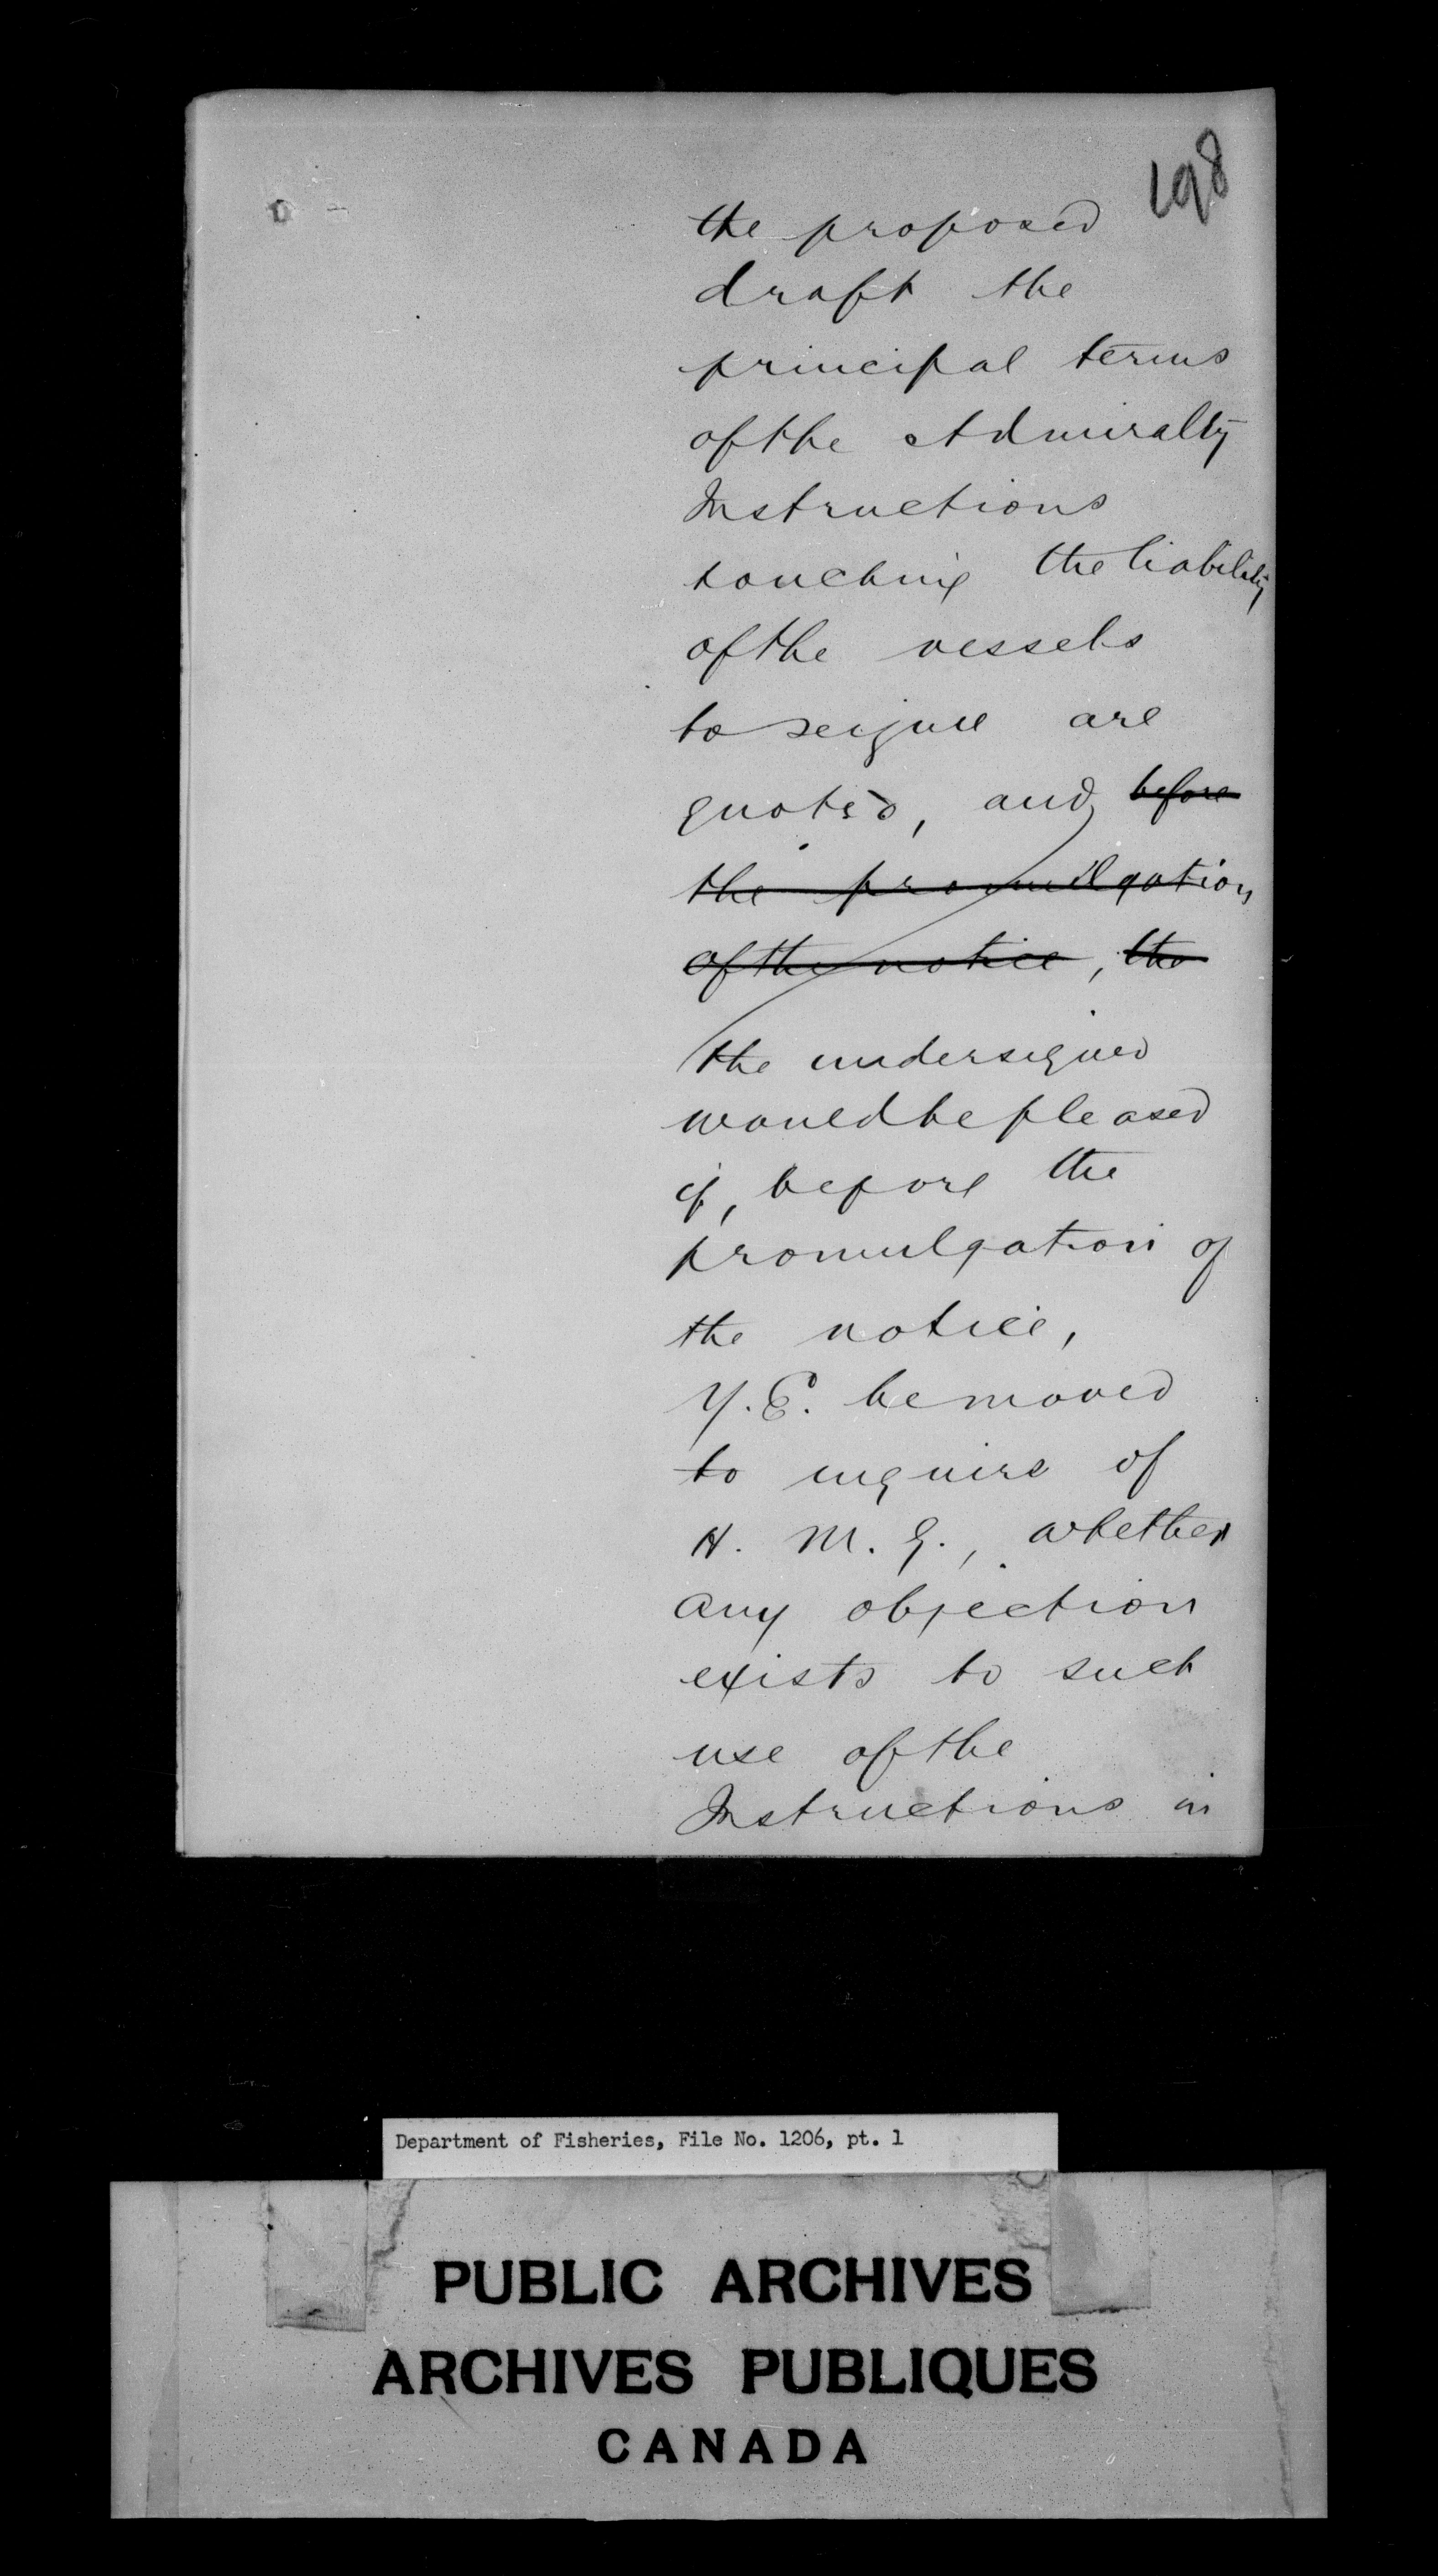 198
the proposed
draft the
principal terms
of the Admiralty
Instructions
touching the liability
of the vessels
to seizure are
quoted, and before
the promulgation
of the notice, the
the undersigned
would be pleased
if, before the
promulgation of
the notice,
Y.E. be moved
to inquire of
H. M. G., whether
any objection
exists to such
use of the
Instructions in
Department of Fisheries, File No. 1206, pt. 1
PUBLIC ARCHIVES
ARCHIVES PUBLIQUES
CANADA